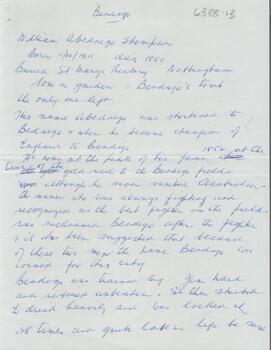 Bendigo
6388.13
William Abednego Thompson
Born 11/10/1811 died 1880
Buried St Marys Nottingham
Now a garden - Bendigo's tomb
the only one left
His name Abednego was shortened to
Bednego & when he became champion of
England to Bendigo
1850 at the
He was at the peak of his fame
time of the gold rush to the Bendigo fields
although he never visited Australia
A miner who was always fighting and
recognised as the best fighter on the field
was nicknamed Bendigo after the fighter
& it has been suggested that because
of these two men the name Bendigo was
coined for this city
Bendigo was trained by Jem Ward
and retired unbeaten. He then started
to drink heavily and was locked up
28 times and quite late in life he was